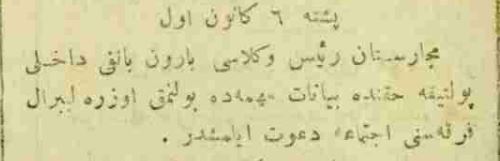 پشته ٦ كانون اول
مجارستان رئيس وكلاسى بارون بانفى داخلى
پولتيقه حقنده بيانات مهمه‌ده بولنمق اوزره ليبرال
فرقه‌سنى اجتماعه دعوت ايلمشدر .